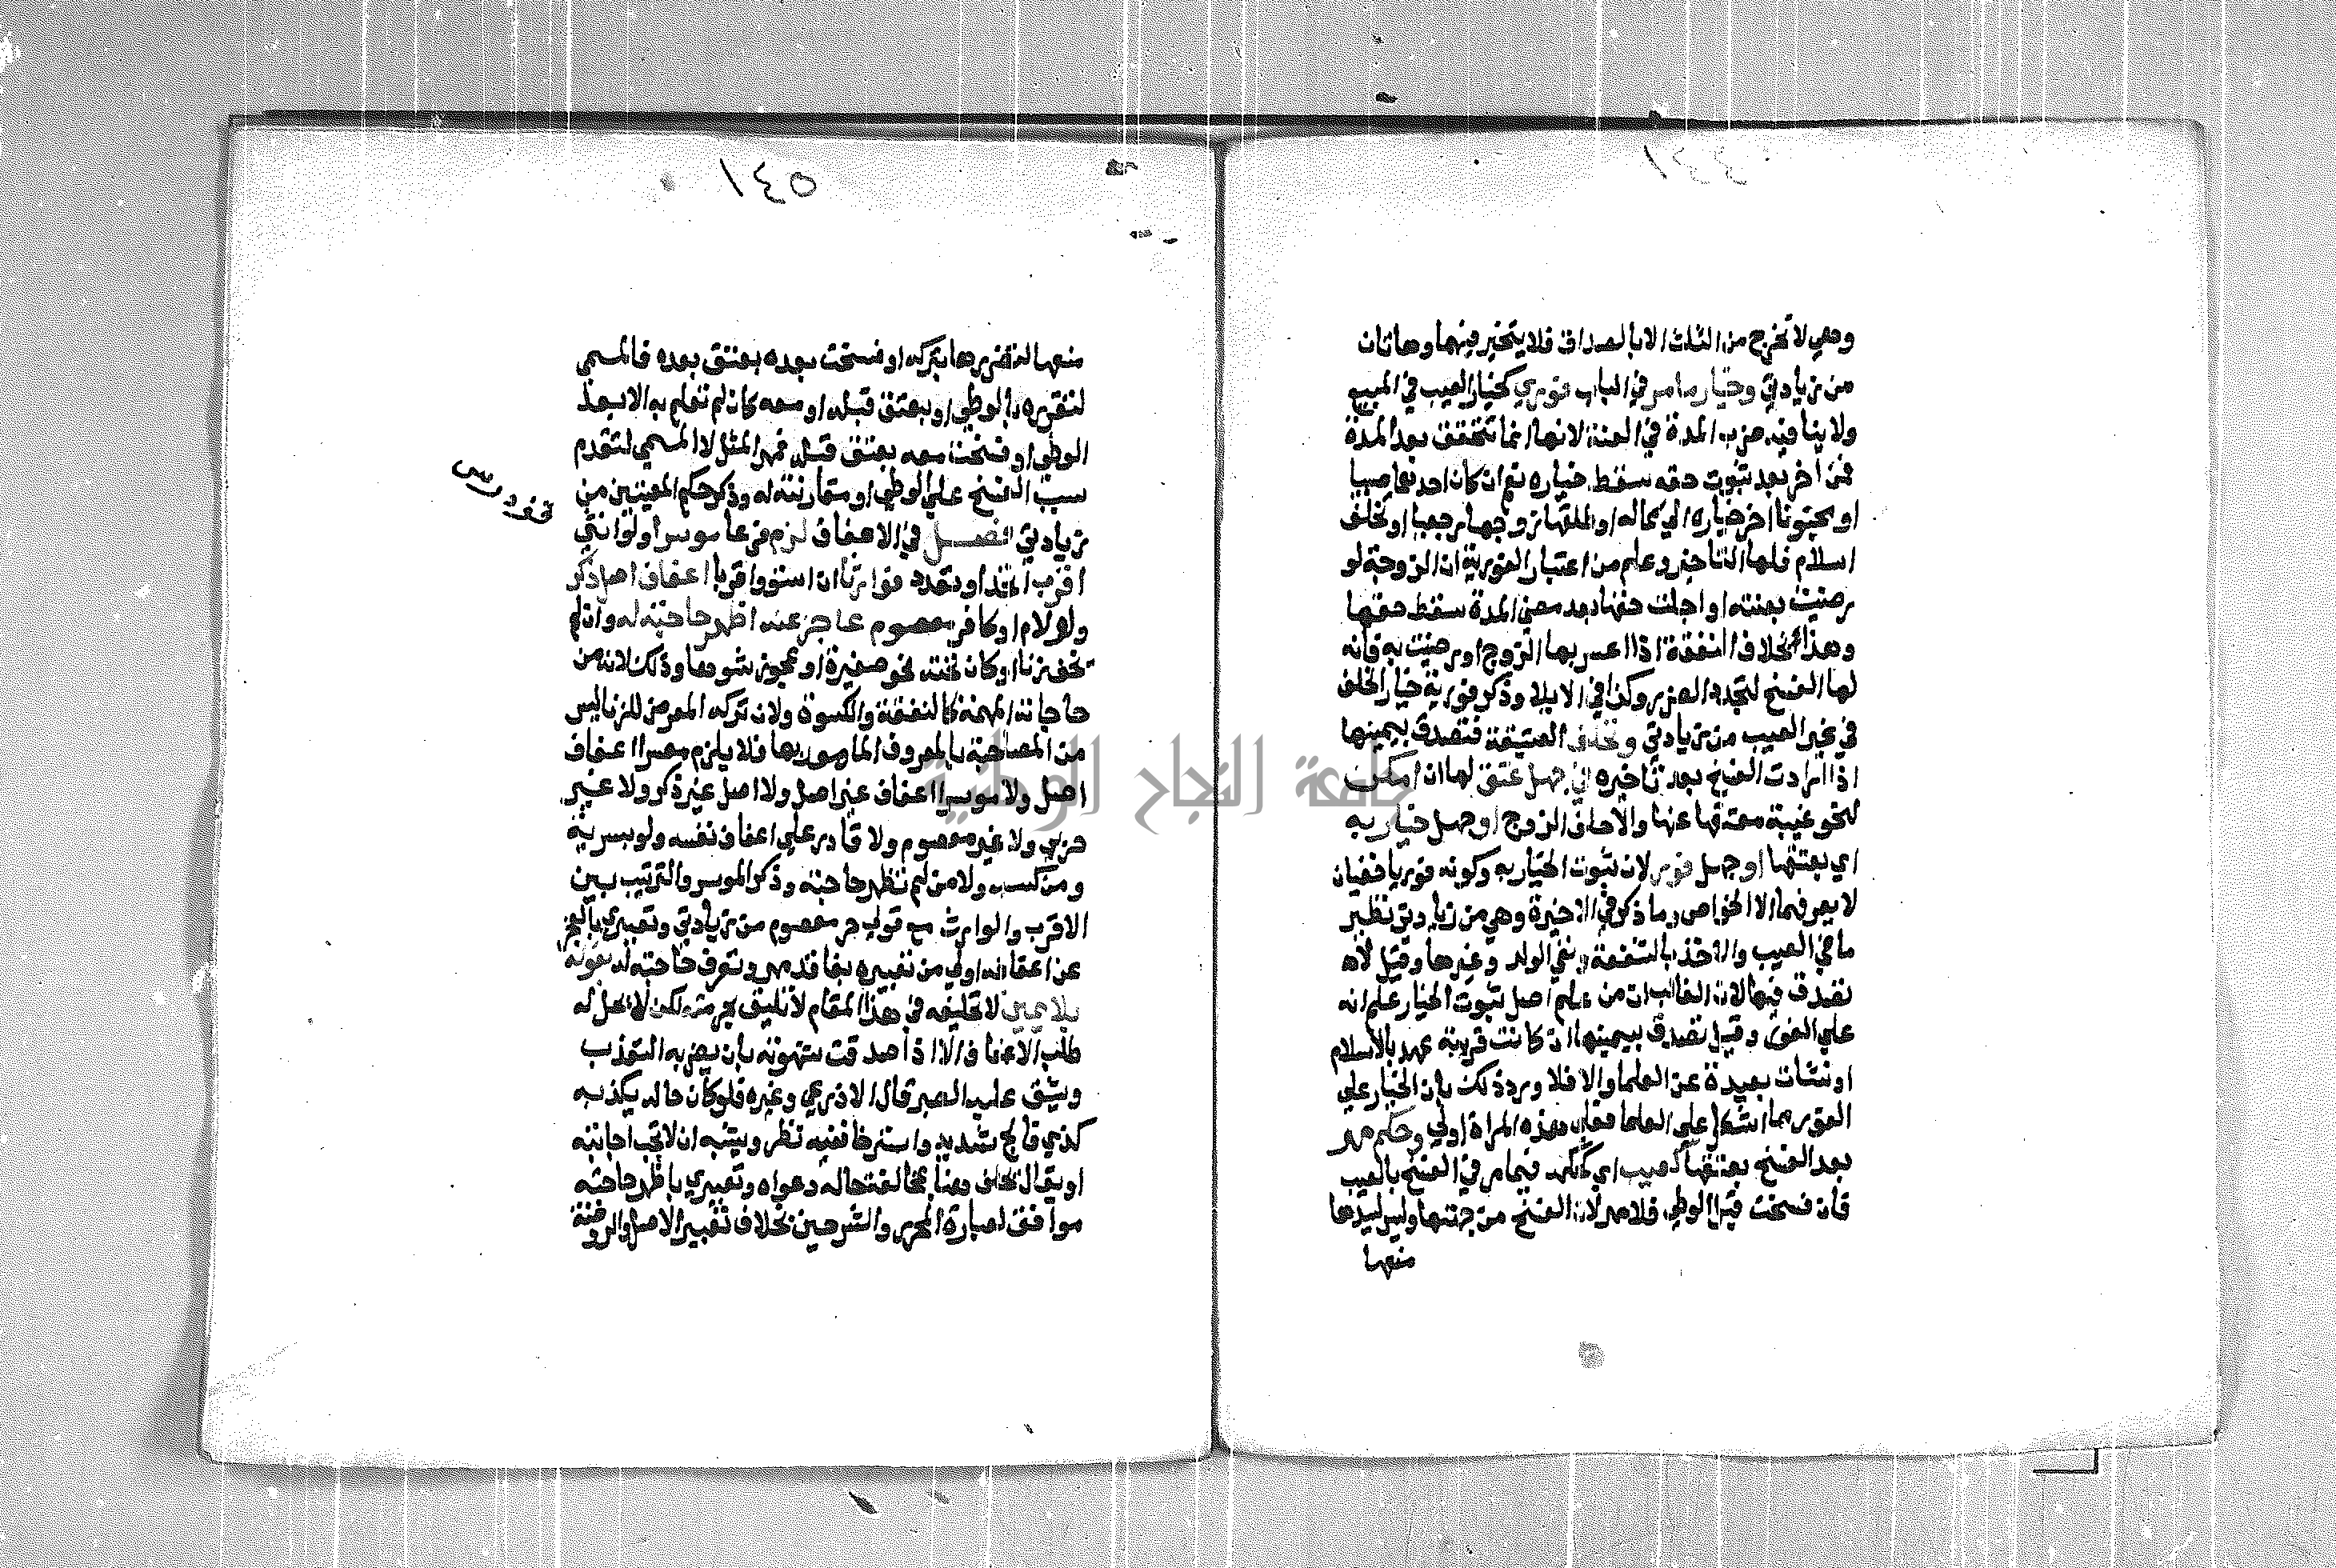 وهي لا تخرج من الثلث الا بالصداق فلا يتخير فيهما وهاتان
من زيادتي وخيار ما مر في الباب فوري كخيار العيب في المبيع
ولا ينافيه ضرب المدة في العنة لانها انما تتحقق بعد المدة
فمن اخر بعد ثبوت حقه سقط خياره نعم ان كان احدهما صبيا
او مجنونا اخر خياره الي كماله او طلقها زوجها رجعيا او تخلف
اسلام فلها التاخير وعلم من اعتبار الفورية ان الزوجة لو
رضيت بعنته او اجلت حقها بعد مضي المدة سقط حقها
وهذا بخلاف النفقة اذا اعسر بها الزوج او رضيت به فانه
لها الفسخ لتجدد الضرر وكذا في الايلا وذكر فورية خيار الخلف
في غير العيب من زيادتي وتحلف العتيقة فتصدق بيمينها
اذا ارادت الفسخ بعد تاخيره في جهل عتق لها ان امكن
لنحو غيبة معتقها عنها والا حلف الزوج او جهل خيار به
اي بعتقها او جهل فور لان ثبوت الخيار به وكونه فوريا خفيان
لا يعرفهما الا الخواص وما ذكر في الاخيرة وهي من زيادتي نظير
ما في العيب والاخذ بالشفعة ونفي الولد وغيرها وقيل لا
تصدق فيها لان الغالب ان من علم اصل ثبوت الخيار علم انه
علي الفور وقيل تصدق بيمينها ان كانت قريبة عهد بالاسلام
او نشات بعيدة عن العلما والا فلا ورد ذلك بان الخيار علي
الفور مما اشكل علي العلما فعلي هذه المراة اولي وحكم مهر
بعد الفسخ بعتقها كعيب اي كحكمه فيما مر في الفسخ بالعيب
فان فسخت قبل الوطي فلا مهر لان الفسخ من جهتها وليس لسيدها
منعها
١٤٥
منعها لتضررها بتركه او فسخت بعده بعتق بعده فالمسمي
لتقرره بالوطي او بعتق قبله او معه كان لم تعلم به الا بعد
الوطي او فسخت معه بعتق قبله فمهر المثل لا المسمي لتقدم
سبب الفسخ علي الوطي او مقارنته له وذكر حكم المعيتين من
زيادتي فصل في الاعفاف لزم فرعا موسرا ولو انثي
اقرب اتحد او تعدد فوارثا ان استووا قربا اعفاف اصل ذكر
ولو لام او كافر معصوم عاجز عنه اظهر حاجته له وان لم
يخف زنا او كان تحته نحو صغيرة او عجوز شوها وذلك لانه من
حاجاته المهمة كالنفقة والكسوة ولان تركه المعرض للزنا ليس
من المصاحبة بالمعروف المامور بها فلا يلزم معسرا اعفاف
اصل ولا موسرا اعفاف غير اصل ولا اصل غير ذكر ولا غير
حر ولا غير معصوم ولا قادر علي اعفاف نفسه ولو بسرية
ومن كسبه ولا من لم تظهر حاجته وذكر الموسر والترتيب بين
الاقرب والوارث مع قولي حر معصوم من زيادتي وتعبيري بالعجز
عن اعفافه اولي من تعبيره بفاقد مهر وتعرف حاجته له بقوله
بلا يمين لا تحليفه في هذا المقام لا تليق بحرمته لكن لا يحل له
طلب الاعفاف الا اذا صدقت شهوته بان يضر به التعذب
ويشق عليه الصبر قال الاذرعي وغيره فلو كان حاله يكذبه
كذي فالج شديد واسترخا ففيه نظر ويشبه ان لا تجب اجابته
او يقال تحلف هنا بمخالفة حاله دعواه وتعبيري باظهر حاجته
موافق لعبارة المحرر والشرحين بخلاف تعبير الاصل والروضة